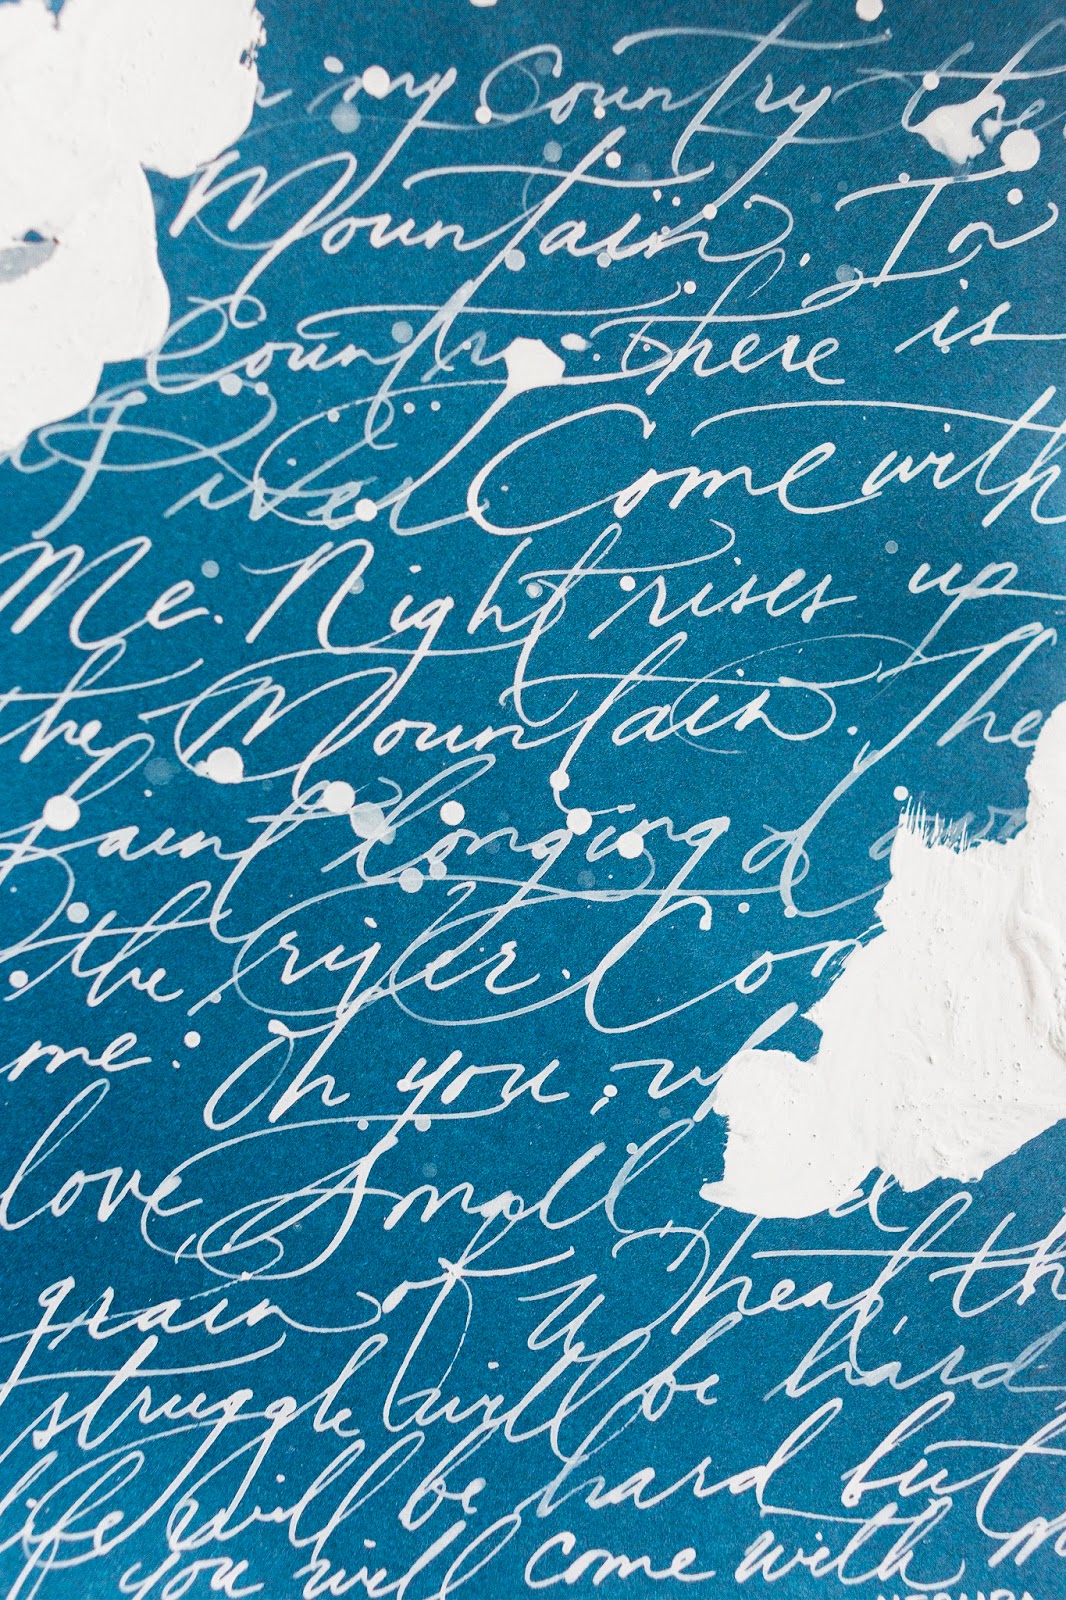 my Country the
Mountain. In
Country there is
a river. Come with
Me. Night rises up
the Mountain. The
faint longing
the river. Com
me. Oh you, wh
love Small
grain of wheat, th
struggle will be hard,
life will be hard but
you will come with